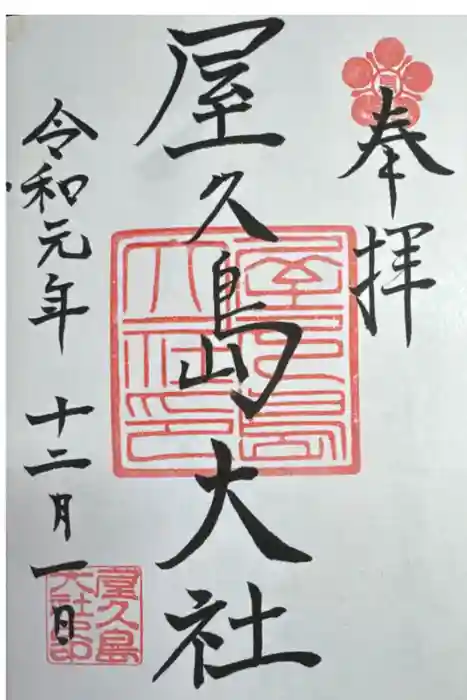 奉拝
屋久島大社
令和元年 十二月一日
屋久島大社印
屋久島大社印